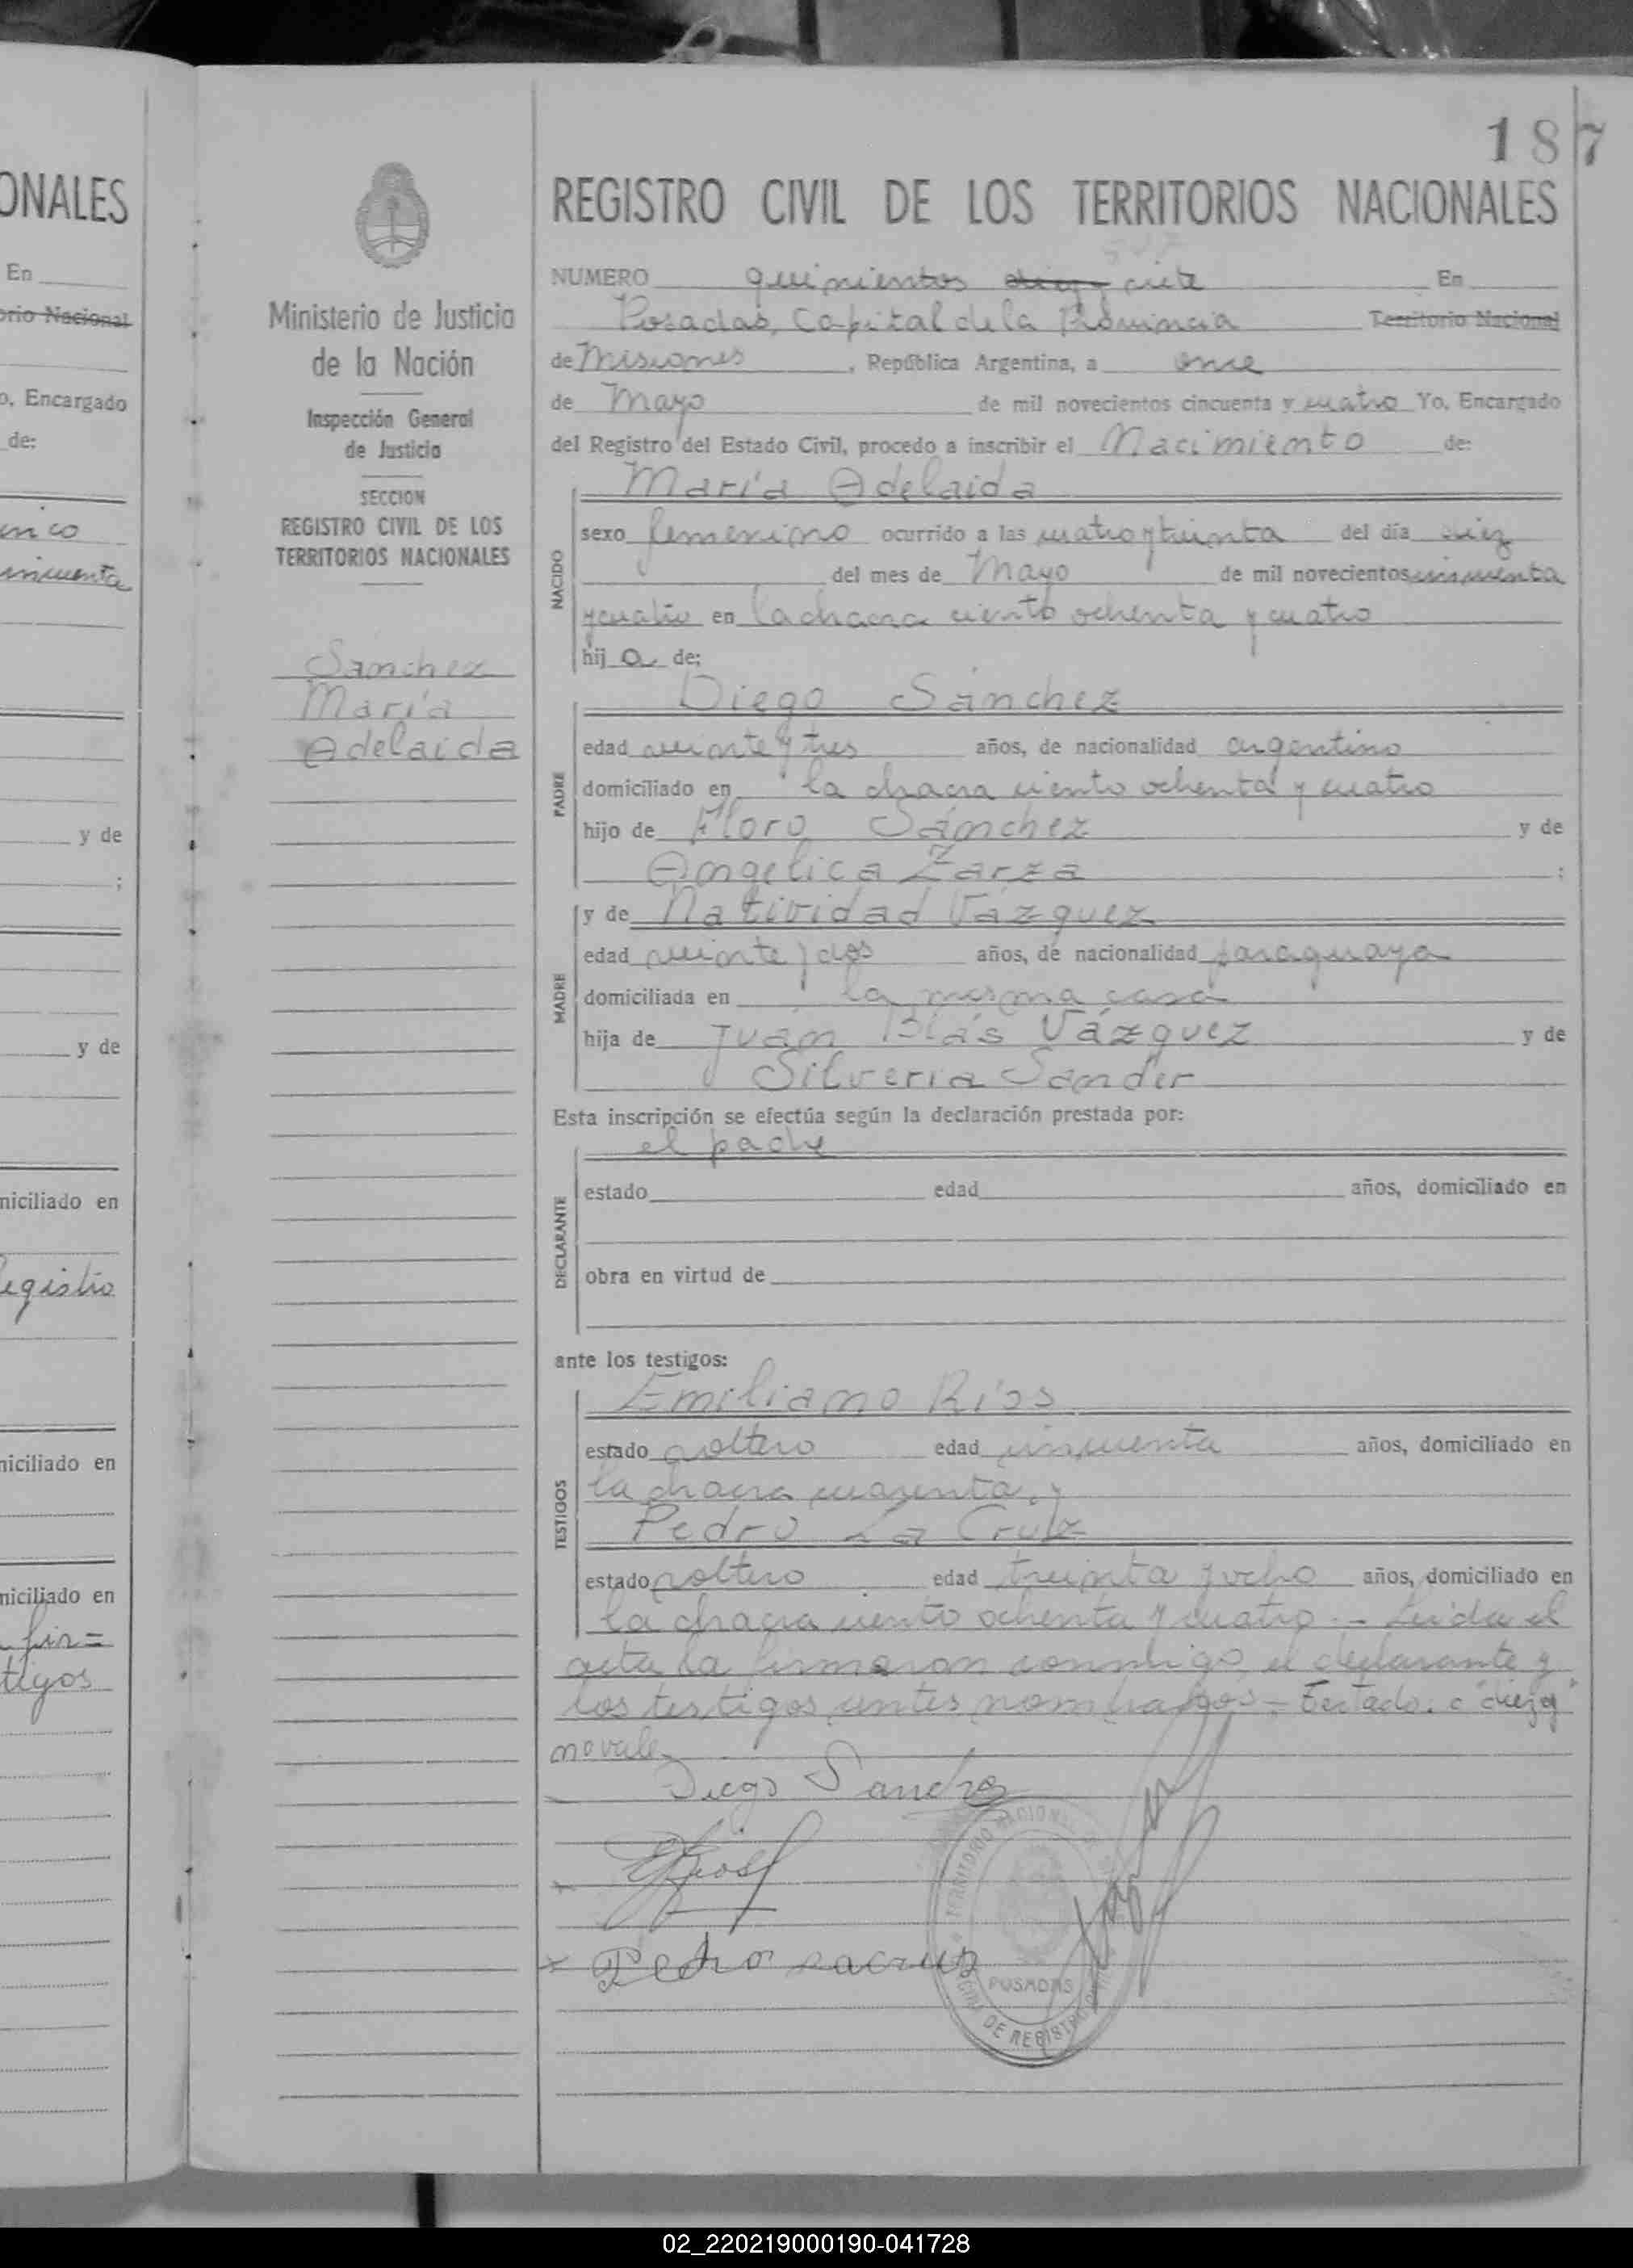 187
ONALES
En
orio Nacional
o, Encargado
de:
inco
incuenta
y de
;
y de
niciliado en
egistro
niciliado en
niciliado en
fir=
tigos
Ministerio de Justicia
de la Nación
Inspección General
de Justicia
SECCION
REGISTRO CIVIL DE LOS
TERRITORIOS NACIONALES
Sanchez
María
Adelaida
REGISTRO CIVIL DE LOS TERRITORIOS NACIONALES
NUMERO quinientos diez y siete En
Posadas, Capital de la Provincia Territorio Nacional
de Misiones, República Argentina, a once
de Mayo de mil novecientos cincuenta y cuatro Yo, Encargado
del Registro del Estado Civil, procedo a inscribir el Nacimiento de:
María Adelaida
NACIDO
sexo femenino ocurrido a las cuatro y treinta del día diez
del mes de Mayo de mil novecientos cincuenta
y cuatro en la chacra ciento ochenta y cuatro
hij a de:
Diego Sánchez
PADRE
edad veinte y tres años, de nacionalidad argentino
domiciliado en la chacra ciento ochenta y cuatro
hijo de Floro Sánchez y de
Angelica Zarza ;
y de Natividad Vázquez
MADRE
edad veinte y dos años, de nacionalidad paraguaya
domiciliada en la misma casa
hija de Juan Blás Vázquez y de
Silveria Sander
Esta inscripción se efectúa según la declaración prestada por:
el padre
DECLARANTE
estado edad años, domiciliado en
obra en virtud de
ante los testigos:
Emiliano Ríos
TESTIGOS
estado soltero edad cincuenta años, domiciliado en
la chacra cuarenta, y
Pedro La Cruz
estado soltero edad treinta y ocho años, domiciliado en
la chacra ciento ochenta y cuatro.- Leída el
acta la firmaron conmigo el declarante y
los testigos antes nombrados - Testado: "diez y"
no vale
Diego Sanchez
ERios
Pedro Lacruz
TERRITORIO NACIONAL
POSADAS
DE REGISTRO
02_220219000190-041728